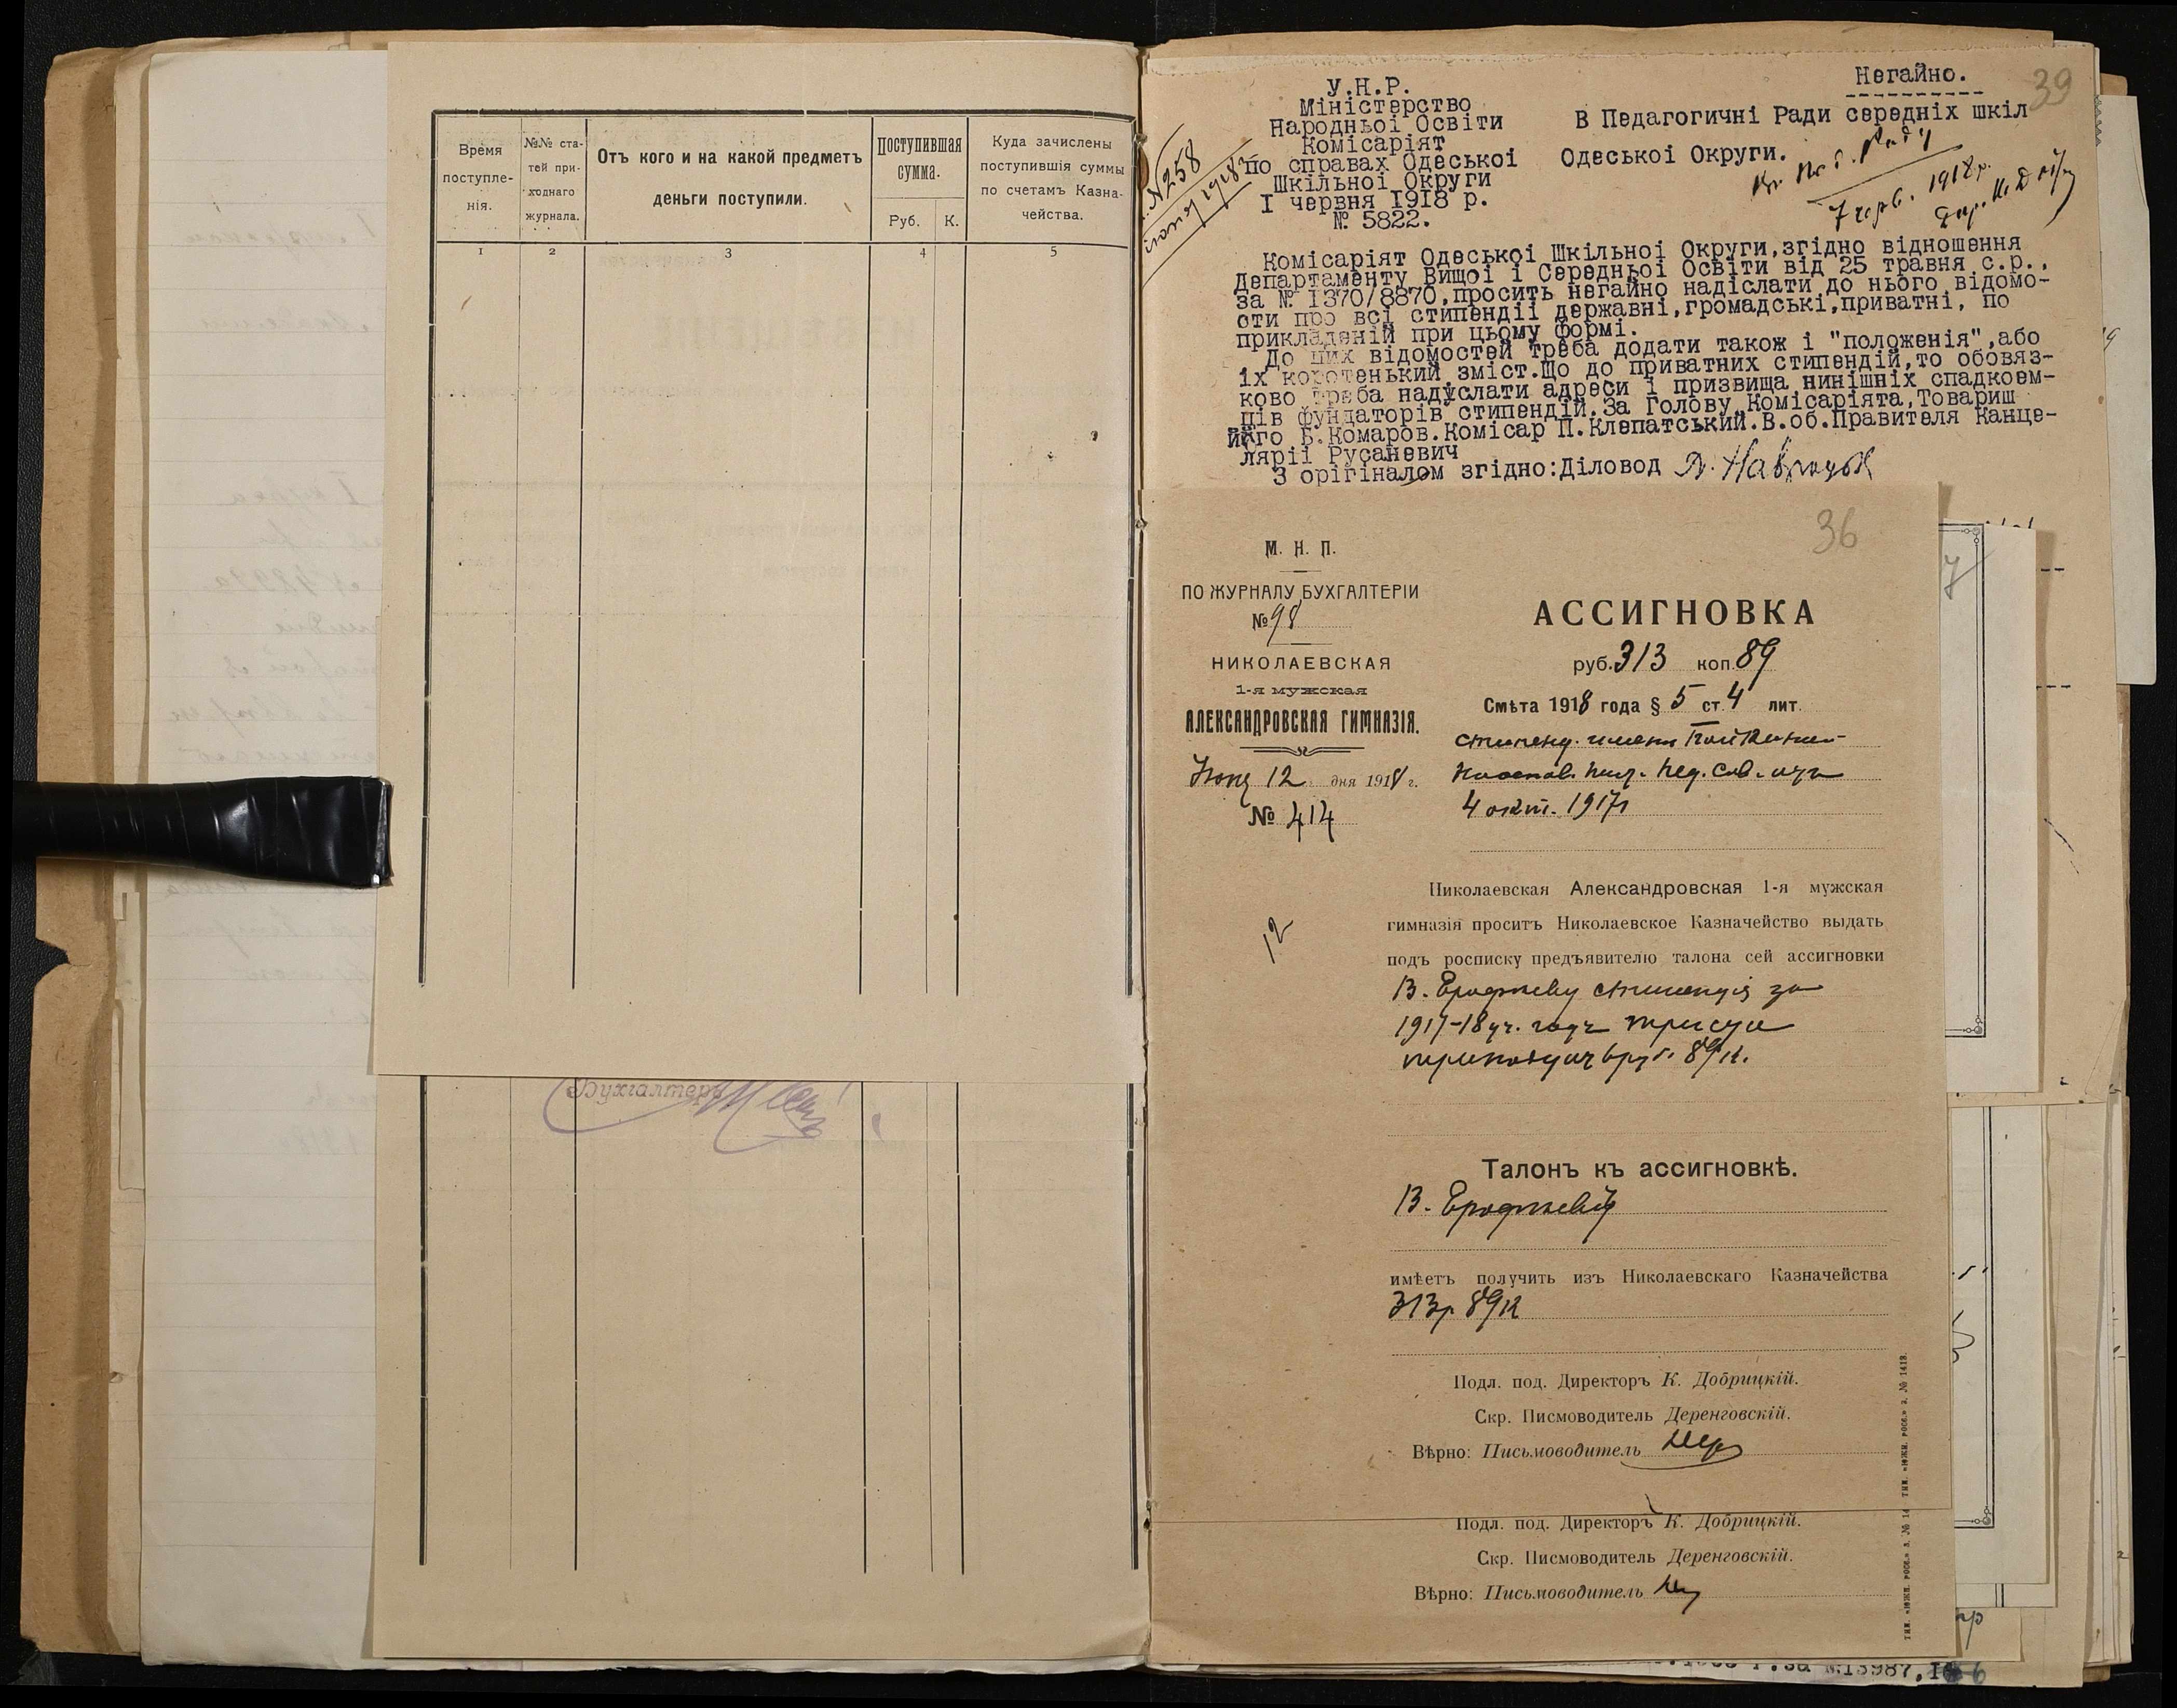 Время поступле-нія.
№№ ста-тей при-ходнаго журнала.
Отъ кого и на какой предметъ деньги поступили.
Поступившая сумма.
Руб.
К.
Куда зачислены поступившія суммы по счетамъ Казна-чейства.
1 2 3 4 5
Бухгалтеръ
У.Н.Р.
Міністерство
Народньоі Освіти
Комісаріят
по справах Одеськоі
Шкільноі Округи
I червня I9I8 р.
№ 5822.
№ 258
Негайно.
39
В Педагогичні Ради середніх шкіл
Одеськоі Округи.
7 черв. 1918 р.
Комісаріят Одеськоі Шкільноі Округи,згідно відношення
Департаменту Вищоі і Середньоі Освіти від 25 травня с.р.,
за № I370/8870,просить негайно надіслати до нього відомо-
сти про всі стипендіі державні,громадські,приватні, по
прикладеній при цьому формі.
До цих відомостей треба додати також і "положенія",або
іх коротенький зміст.Що до приватних стипендій,то обовяз-
ково треба надуслати адреси і призвища нинішніх спадкоем-
ців фундаторів стипендій.За Голову Комісаріята,Товариш
його Б.Комаров.Комісар П.Клепатський.В.об.Правителя Канце-
ляріі Русаневич
З орігіналом згідно:Діловод
36
М. Н. П.
ПО ЖУРНАЛУ БУХГАЛТЕРІИ
№ 98
НИКОЛАЕВСКАЯ
1-я мужская
АЛЕКСАНДРОВСКАЯ ГИМНАЗІЯ.
Іюня 12 дня 1918 г.
№ 414
12
АССИГНОВКА
руб. 313 коп. 89
Смѣта 1918 года § 5 ст. 4 лит.
стипенд. имени
Постав. Пед. Сов. отъ
4 окт. 1917 г
Николаевская Александровская 1-я мужская
гимназія проситъ Николаевское Казначейство выдать
подъ росписку предъявителю талона сей ассигновки
В. Ерофѣеву стипендія за
1917-18 уч. годъ триста
тринадцать руб. 89 к.
Талонъ къ ассигновкѣ.
В. Ерофѣевъ
имѣетъ получить изъ Николаевскаго Казначейства
313 р 89 к
Подл. под. Директоръ К. Добрицкій.
Скр. Писмоводитель Деренговскій.
Вѣрно: Письмоводитель
Подл. под. Директоръ К. Добрицкій.
Скр. Писмоводитель Деренговскій.
Вѣрно: Письмоводитель
тип. «южн. росс.» з. № 1413.